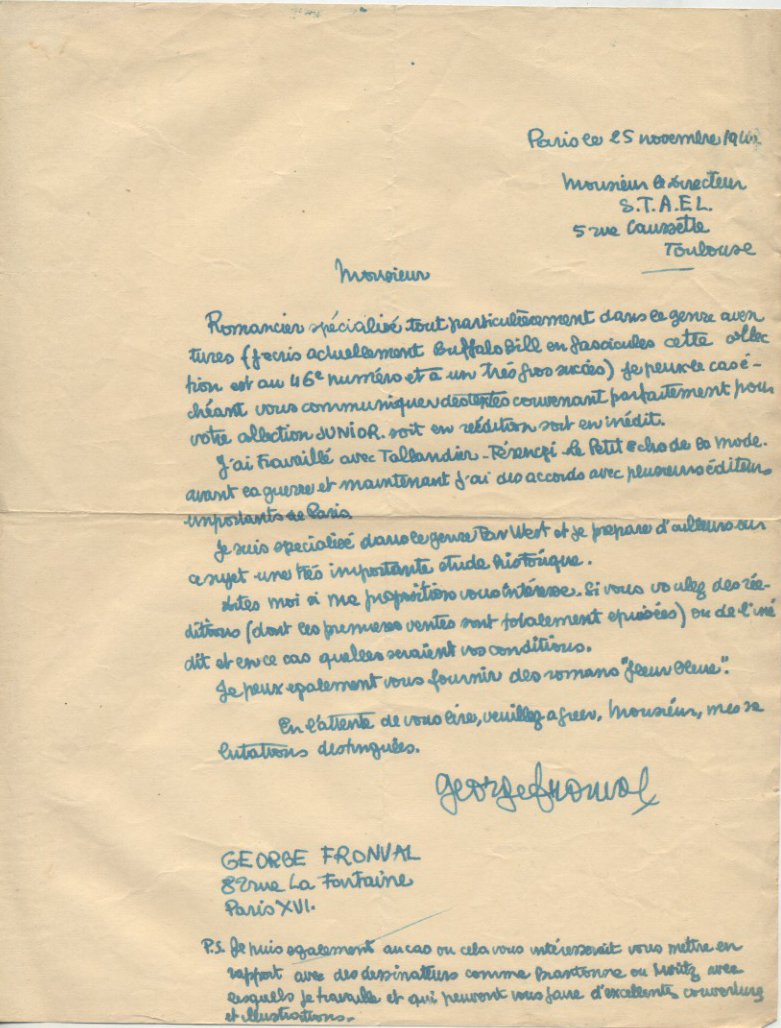 Paris le 25 novembre 194
Monsieur le Directeur
S.T.A.E.L.
5 rue Caussette
Toulouse
Monsieur
Romancier spécialisé tout particulièrement dans le genre aven
tures (j'ecris actuellement Buffalo Bill en fascicules cette collec
tion est au 46e numéro et a un très gros succès) je peux le cas é-
chéant vous communiquer des textes convenant parfaitement pour
votre collection JUNIOR. soit en réédition soit en inédit.
J'ai travaillé avec Tallandier - Férenczi - Le Petit echo de la mode.
avant la guerre et maintenant j'ai des accords avec plusieurs éditeurs
importants de Paris
Je suis specialisé dans le genre Far West et je prepare d'ailleurs sur
ce sujet une très importante etude historique.
Dites moi si ma proposition vous intéresse. Si vous voulez des réé-
ditions (dont les premieres ventes sont totalement epuisées) ou de l'iné
dit et en ce cas quelles seraient vos conditions.
Je peux egalement vous fournir des romans "fleur bleue".
En l'attente de vous lire, veuillez agreer, Monsieur, mes sa
lutations distinguées.
George Fronval
GEORGE FRONVAL
82 rue La Fontaine
Paris XVI.
P.S. Je puis egalement au cas ou cela vous intéresserait vous mettre en
rapport avec des dessinateurs comme Brantonne ou Moritz avec
lesquels je travaille et qui peuvent vous faire d'excellentes couvertures
et illustrations.